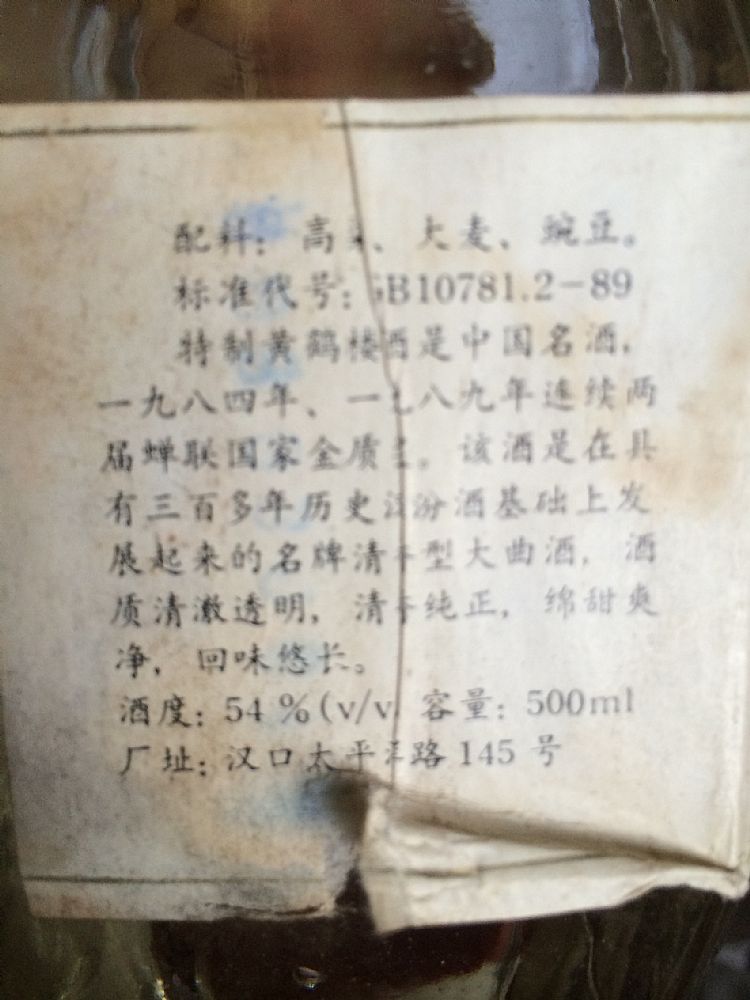 配料：高、大麦、豌豆。
标准代号：GB10781.2-89
特制黄鹤楼酒是中国名酒，
一九八四年、一九八九年连续两
届蝉联国家金质。该酒是在具
有三百多年历史汉汾酒基础上发
展起来的名牌清香型大曲酒，酒
质清澈透明，清香纯正，绵甜爽
净，回味悠长。
酒度：54 %(v/v 容量：500ml
厂址：汉口太平洋路 145 号